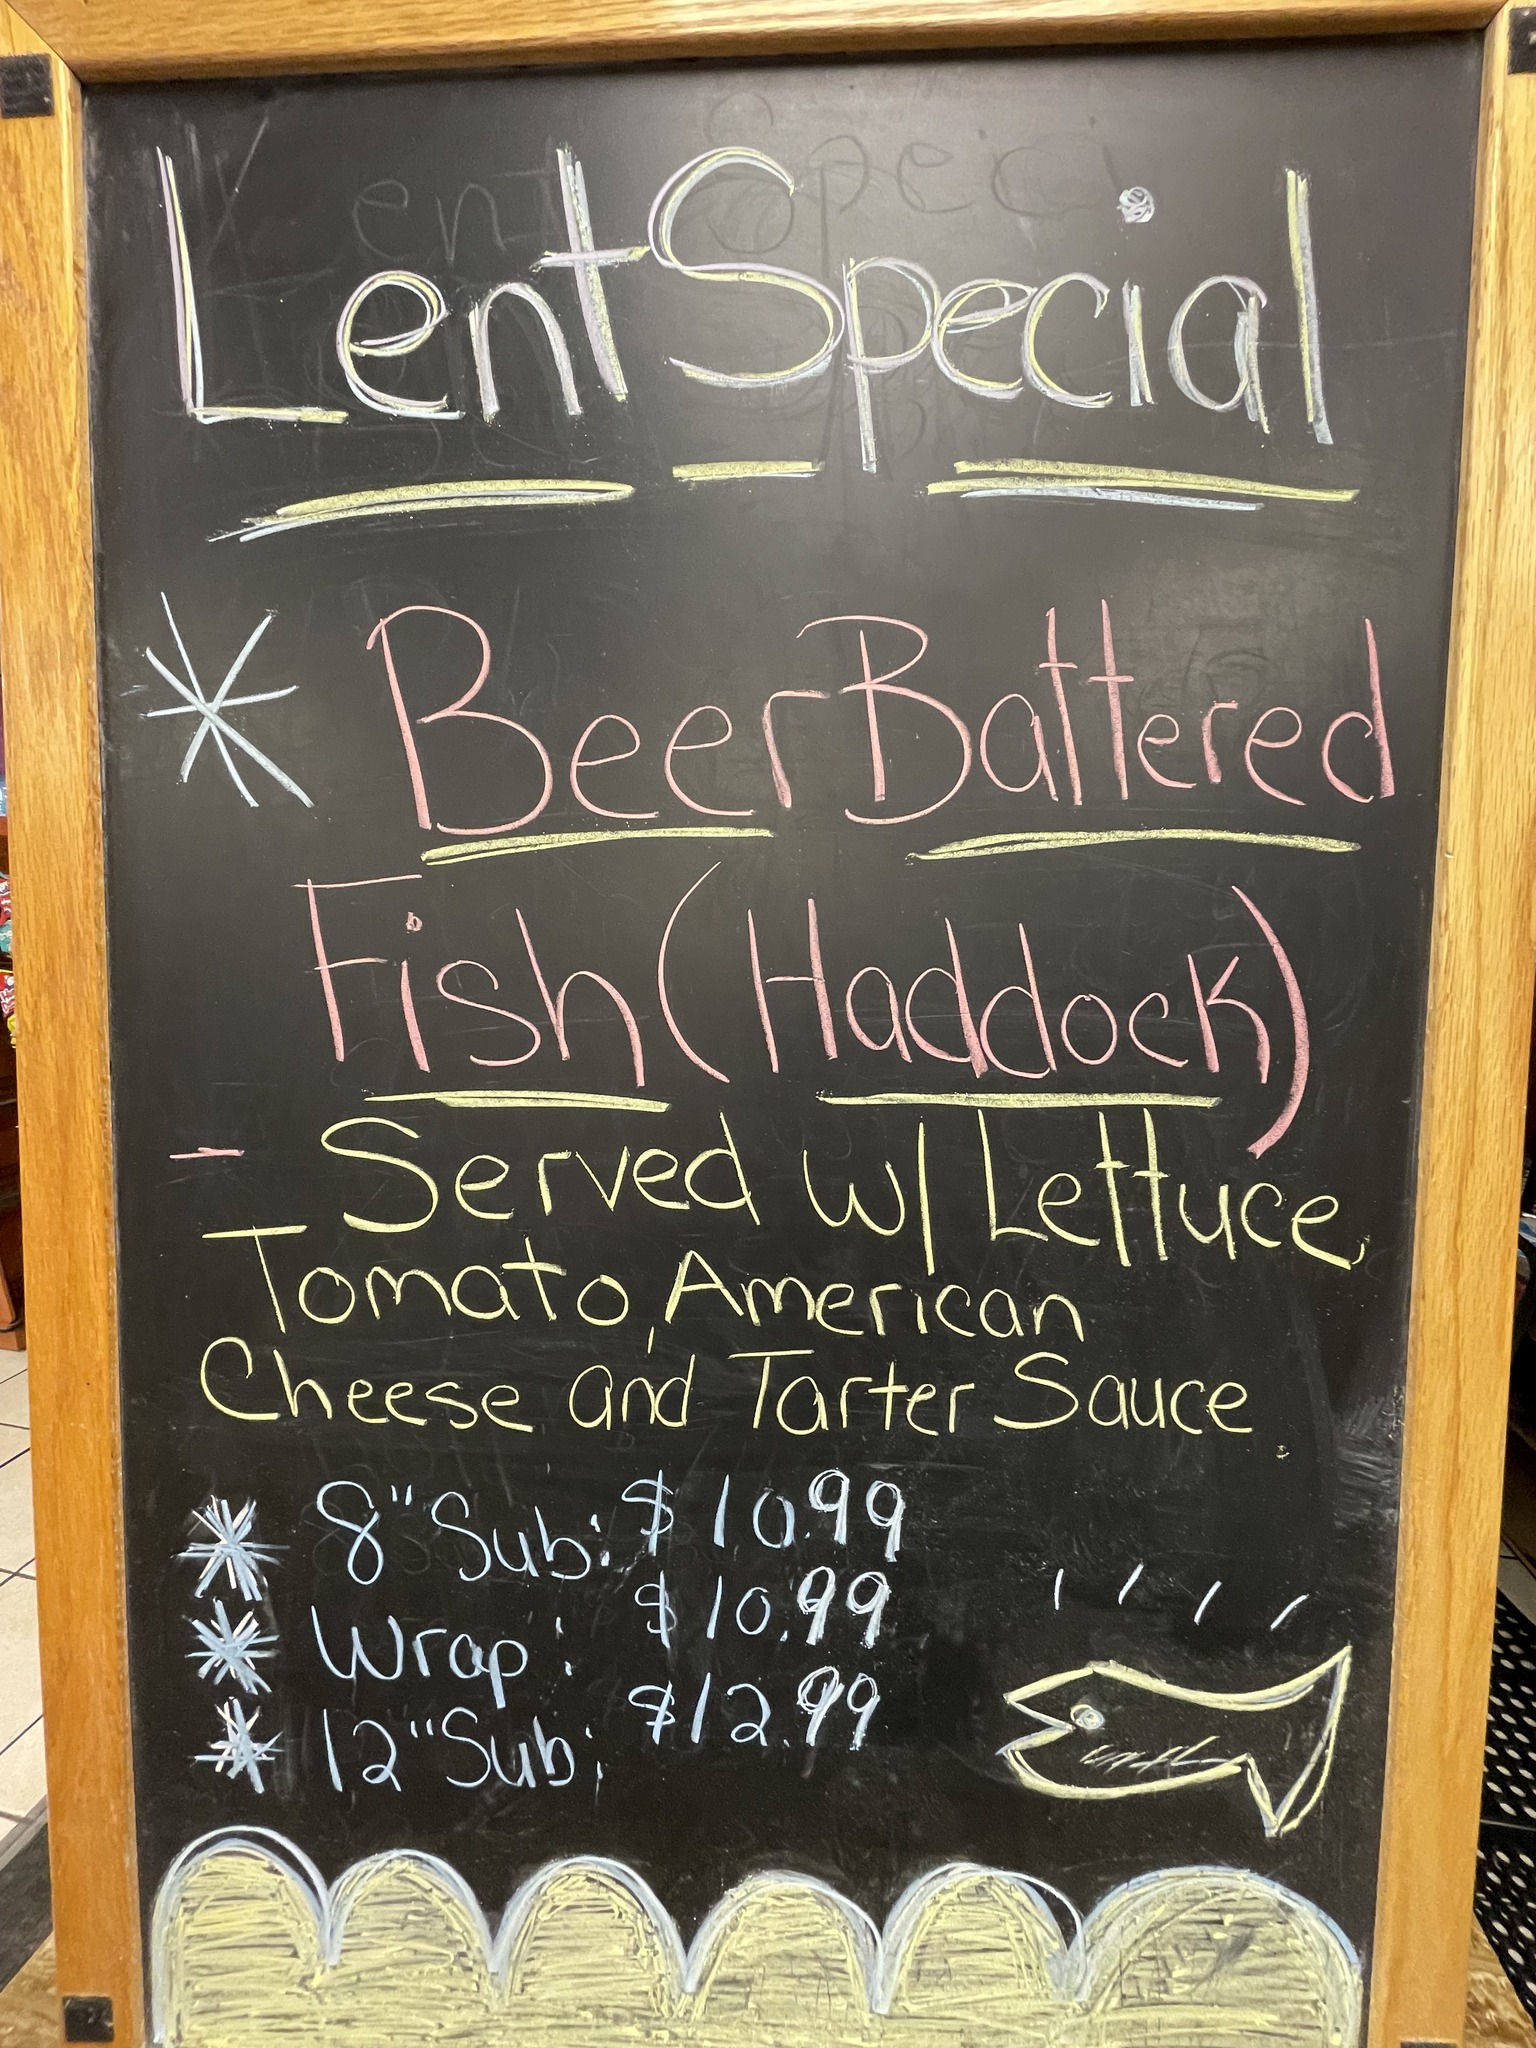 Lent Special
Beer Battered
Fish (Haddock)
- Served w/ Lettuce,
Tomato, American
Cheese and Tarter Sauce.
8" Sub: $10.99
Wrap: $10.99
12" Sub: $12.99